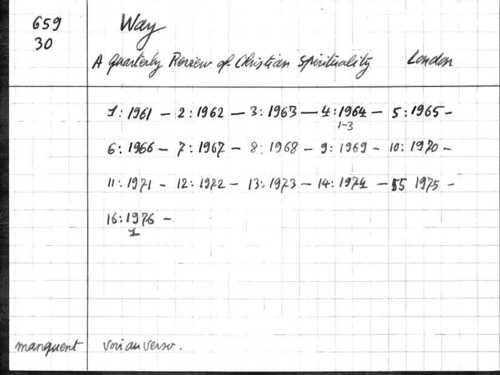 659
30
Way
A Quarterly Review of Christian Spirituality London
1:1961 - 2:1962 - 3:1963 - 4:1964 - 5:1965 -
1-3
6:1966 - 7:1967 - 8:1968 - 9:1969 - 10:1970 -
11:1971 - 12:1972 - 13:1973 - 14:1974 - 1975 -
16:1976 -
1
manquent voir au verso.